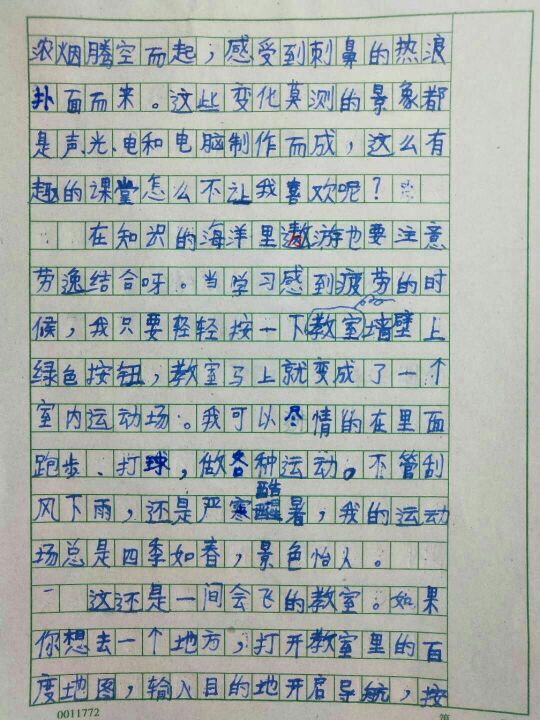 浓烟腾空而起，感受到刺鼻的热浪
扑面而来。这些变化莫测的景象都
是声、光、电和电脑制作而成，这么有
趣的课堂怎么不让我喜欢呢？
在知识的海洋里遨游也要注意
劳逸结合呀。当学习感到疲劳的时
候，我只要轻轻按一下教室墙壁上
绿色按钮，教室马上就变成了一个
室内运动场。我可以尽情的在里面
跑步、打球，做各种运动。不管刮
风下雨，还是严寒酷暑，我的运动
场总是四季如春，景色怡人。
这还是一间会飞的教室。如果
你想去一个地方，打开教室里的百
度地图，输入目的地开启导航，按
0011772